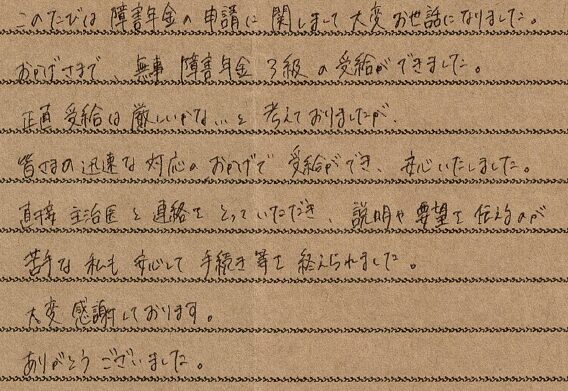 このたびは 障害年金の申請に関しまして大変お世話になりました。
おかげさまで、無事 障害年金3級の受給ができました。
正直 受給は厳しいかな…と 考えておりましたが、
皆さまの迅速な対応のおかげで 受給ができ、安心いたしました。
直接 主治医と連絡をとっていただき、説明や要望を伝えるのが
苦手な私も安心して手続き等を終えられました。
大変感謝しております。
ありがとうございました。